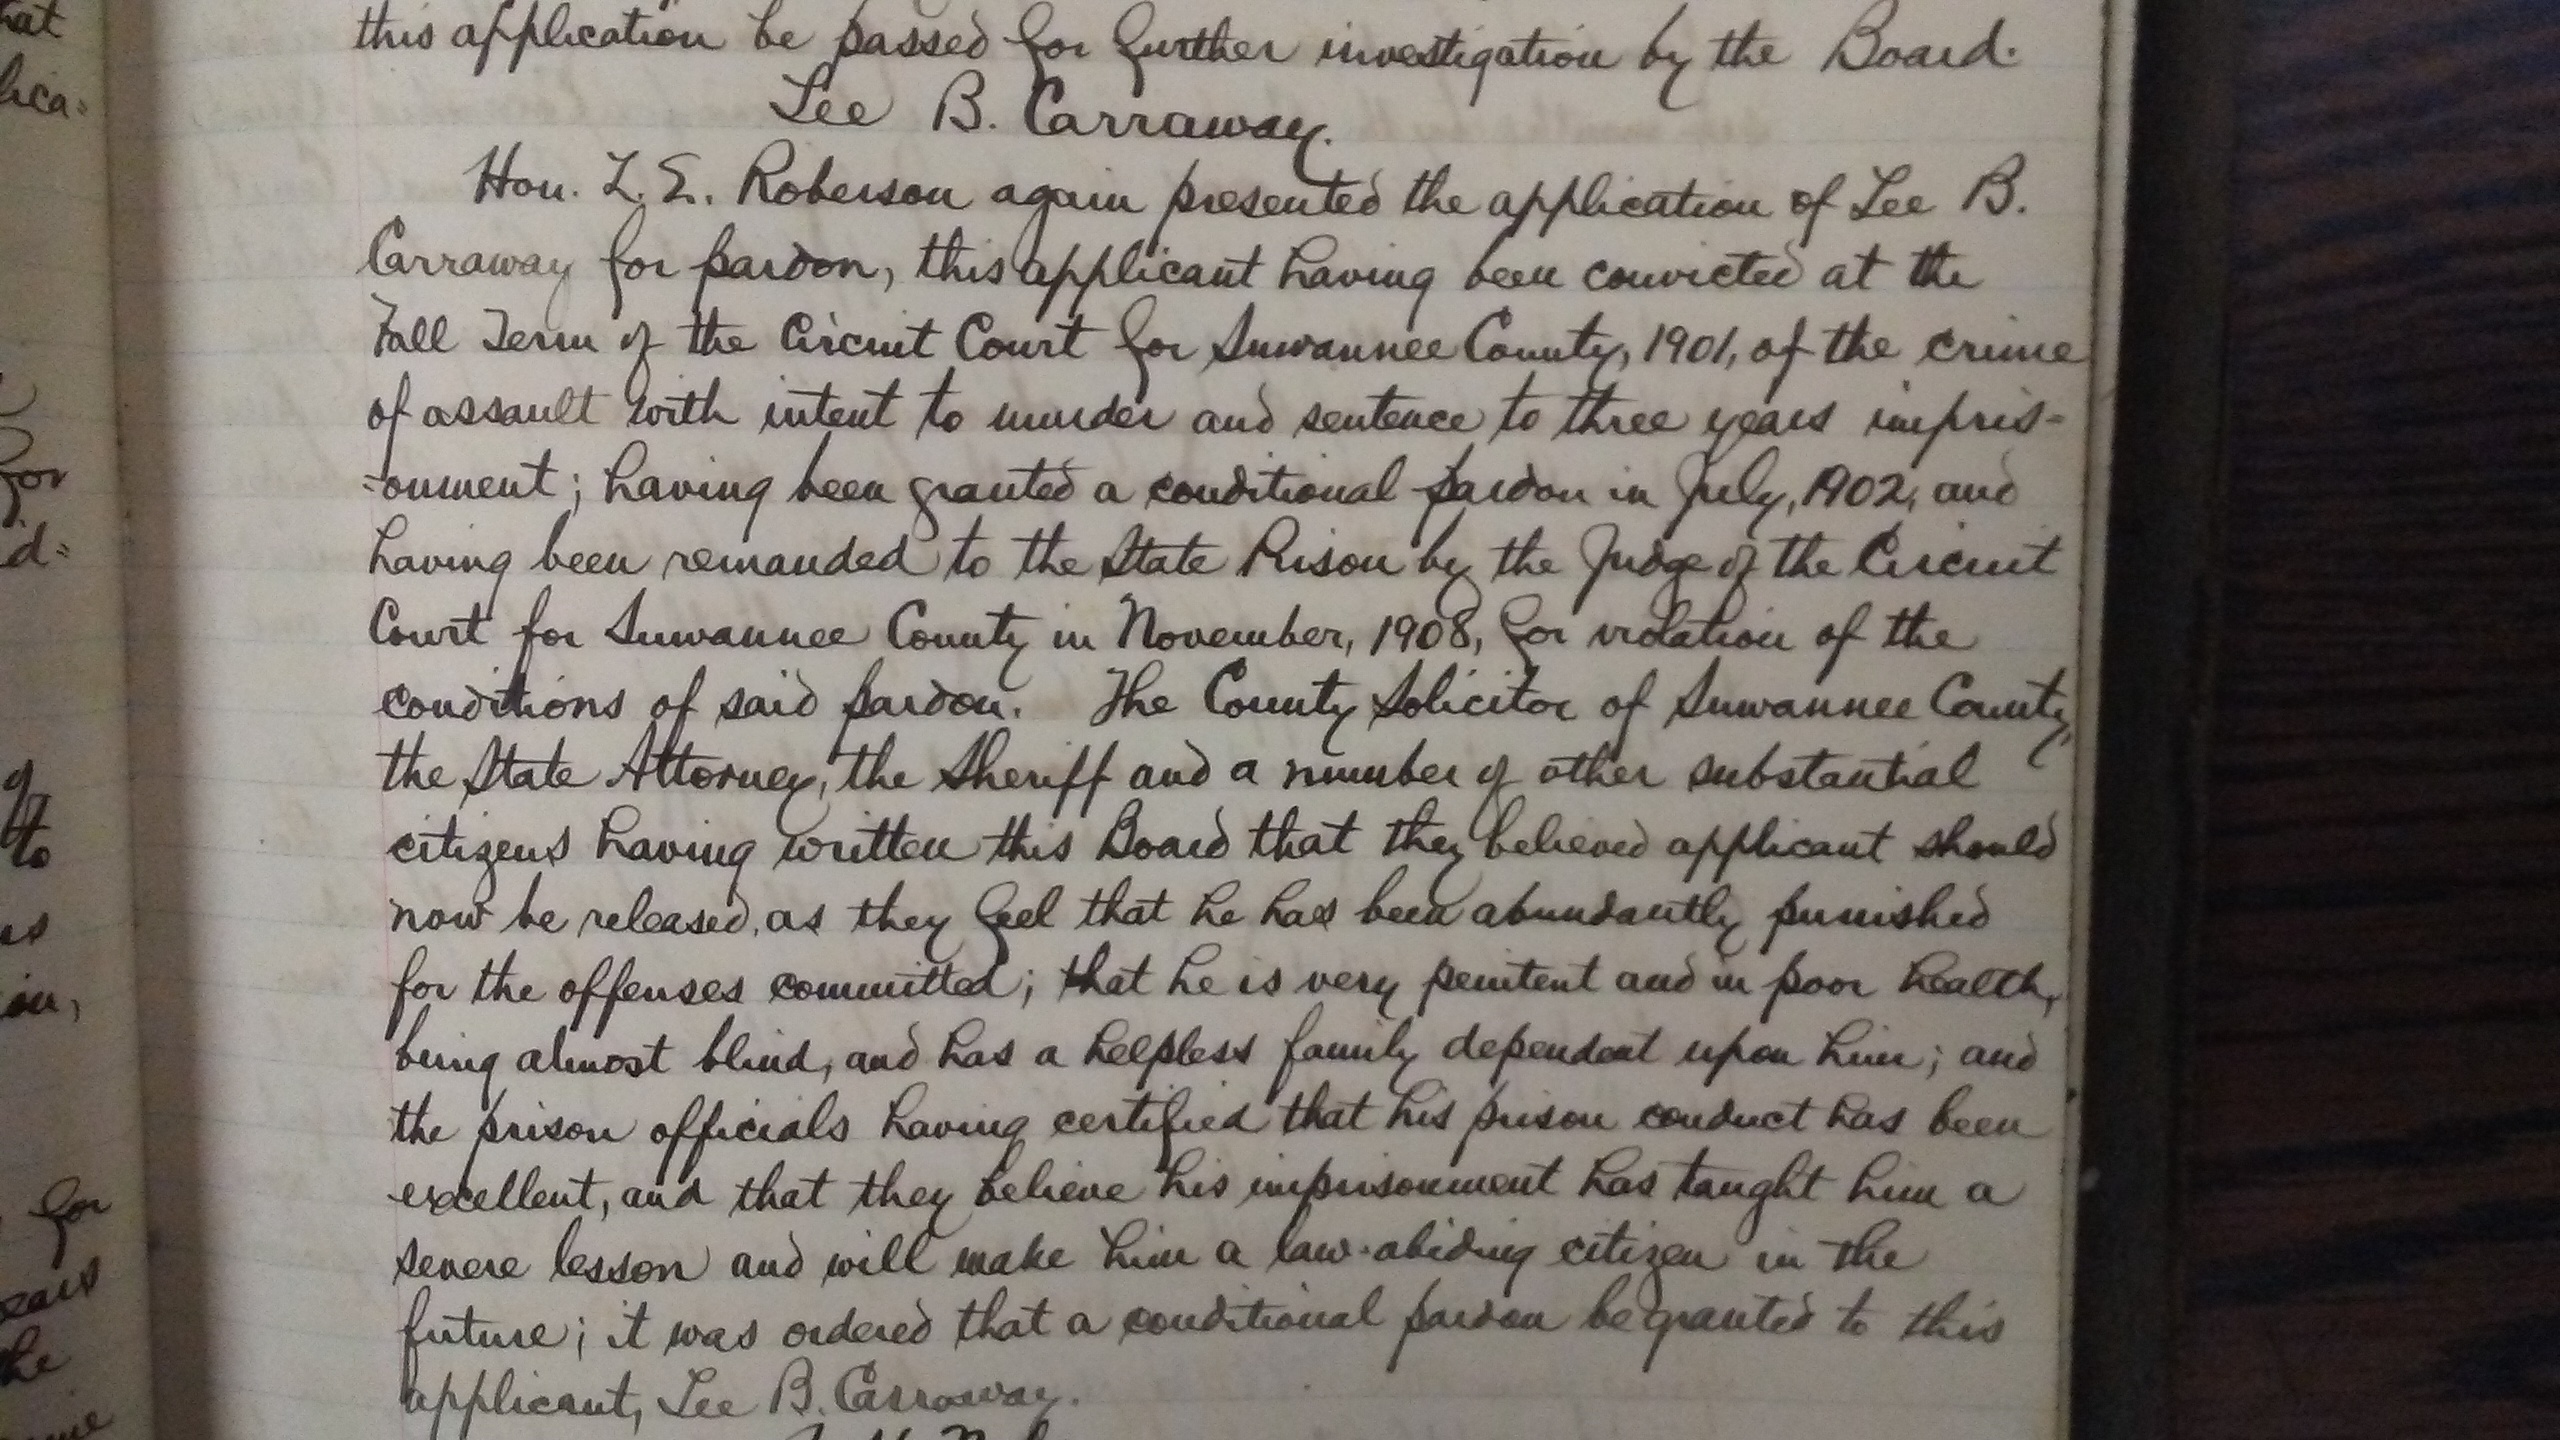 this application be passed for further investigation by the Board.
Lee B. Carraway.
Hon. L. E. Roberson again presented the application of Lee B.
Carraway for pardon, this applicant having been convicted at the
Fall Term of the Circuit Court for Suwannee County, 1901, of the crime
of assault with intent to murder and sentence to three years impris-
=onment; having been granted a conditional pardon in July, 1902, and
having been remanded to the State Prison by the Judge of the Circuit
Court for Suwannee County in November, 1908, for violation of the
conditions of said pardon. The County Solicitor of Suwannee County,
the State Attorney, the Sheriff and a number of other substantial
citizens having written this Board that they believed applicant should
now be released, as they feel that he has been abundantly punished
for the offenses committed; that he is very penitent and in poor health,
being almost blind, and has a helpless family dependent upon him; and
the prison officials having certified that his prison conduct has been
excellent, and that they believe his imprisonment has taught him a
severe lesson and will make him a law-abiding citizen in the
future; it was ordered that a conditional pardon be granted to this
applicant, Lee B. Carraway.